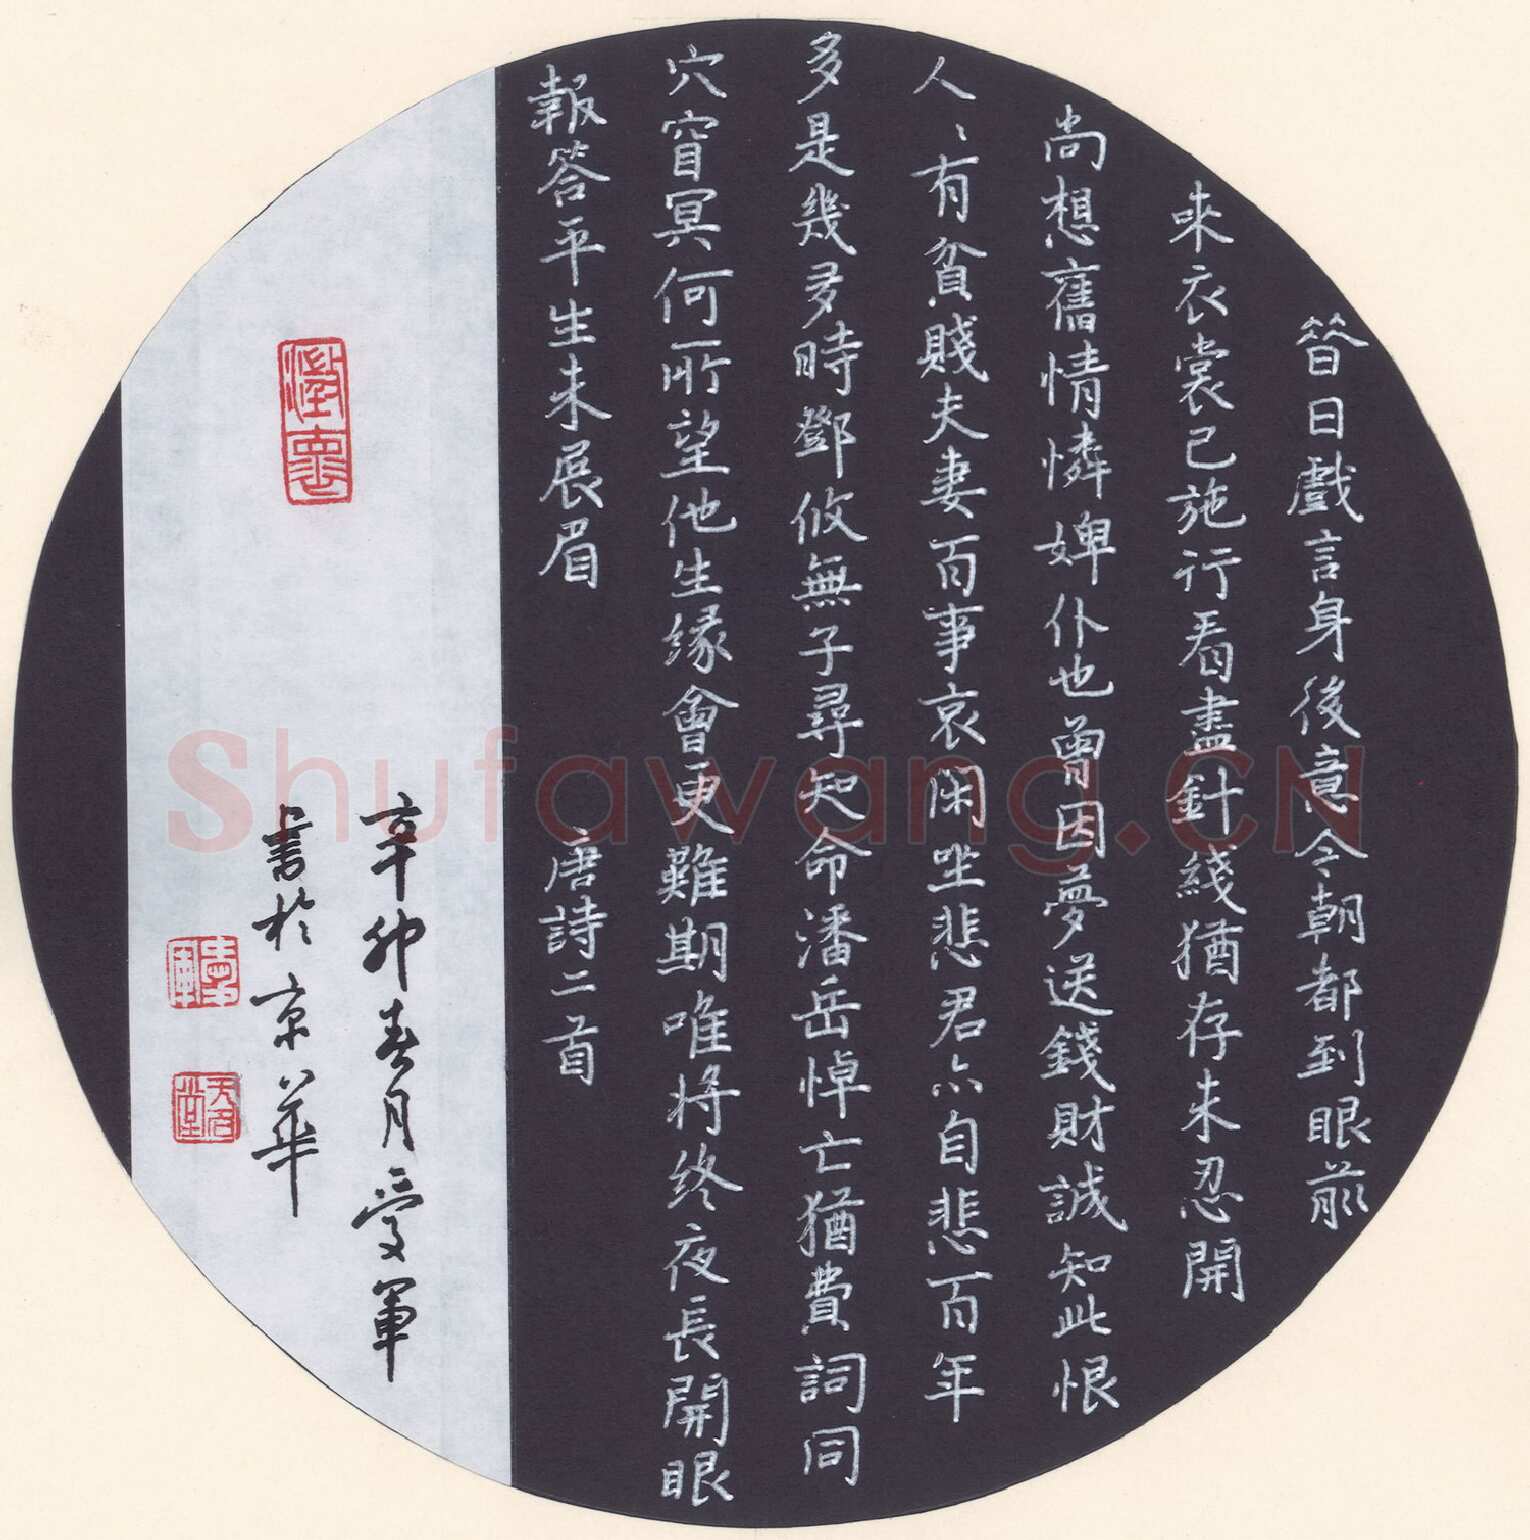 昝日戲言身後意令朝都到眼前
來衣裳已施行看盡針綫猶存未忍開
尚想舊情憐婢仆也曾因夢送錢財誠知此恨
人、有貧賤夫妻百事哀閑坐悲君亦自悲百年
多是幾多時鄧攸無子尋知命潘岳悼亡猶費詞同
穴窅冥何所望他生緣會更難期唯将终夜長開眼
報答平生未展眉 唐詩二首
辛卯春月受軍
書於京華
Shufawang.CN